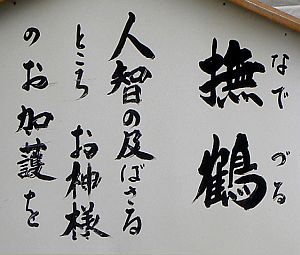 撫鶴
なでづる
人智の及ばざる
ところ お神様
のお加護を